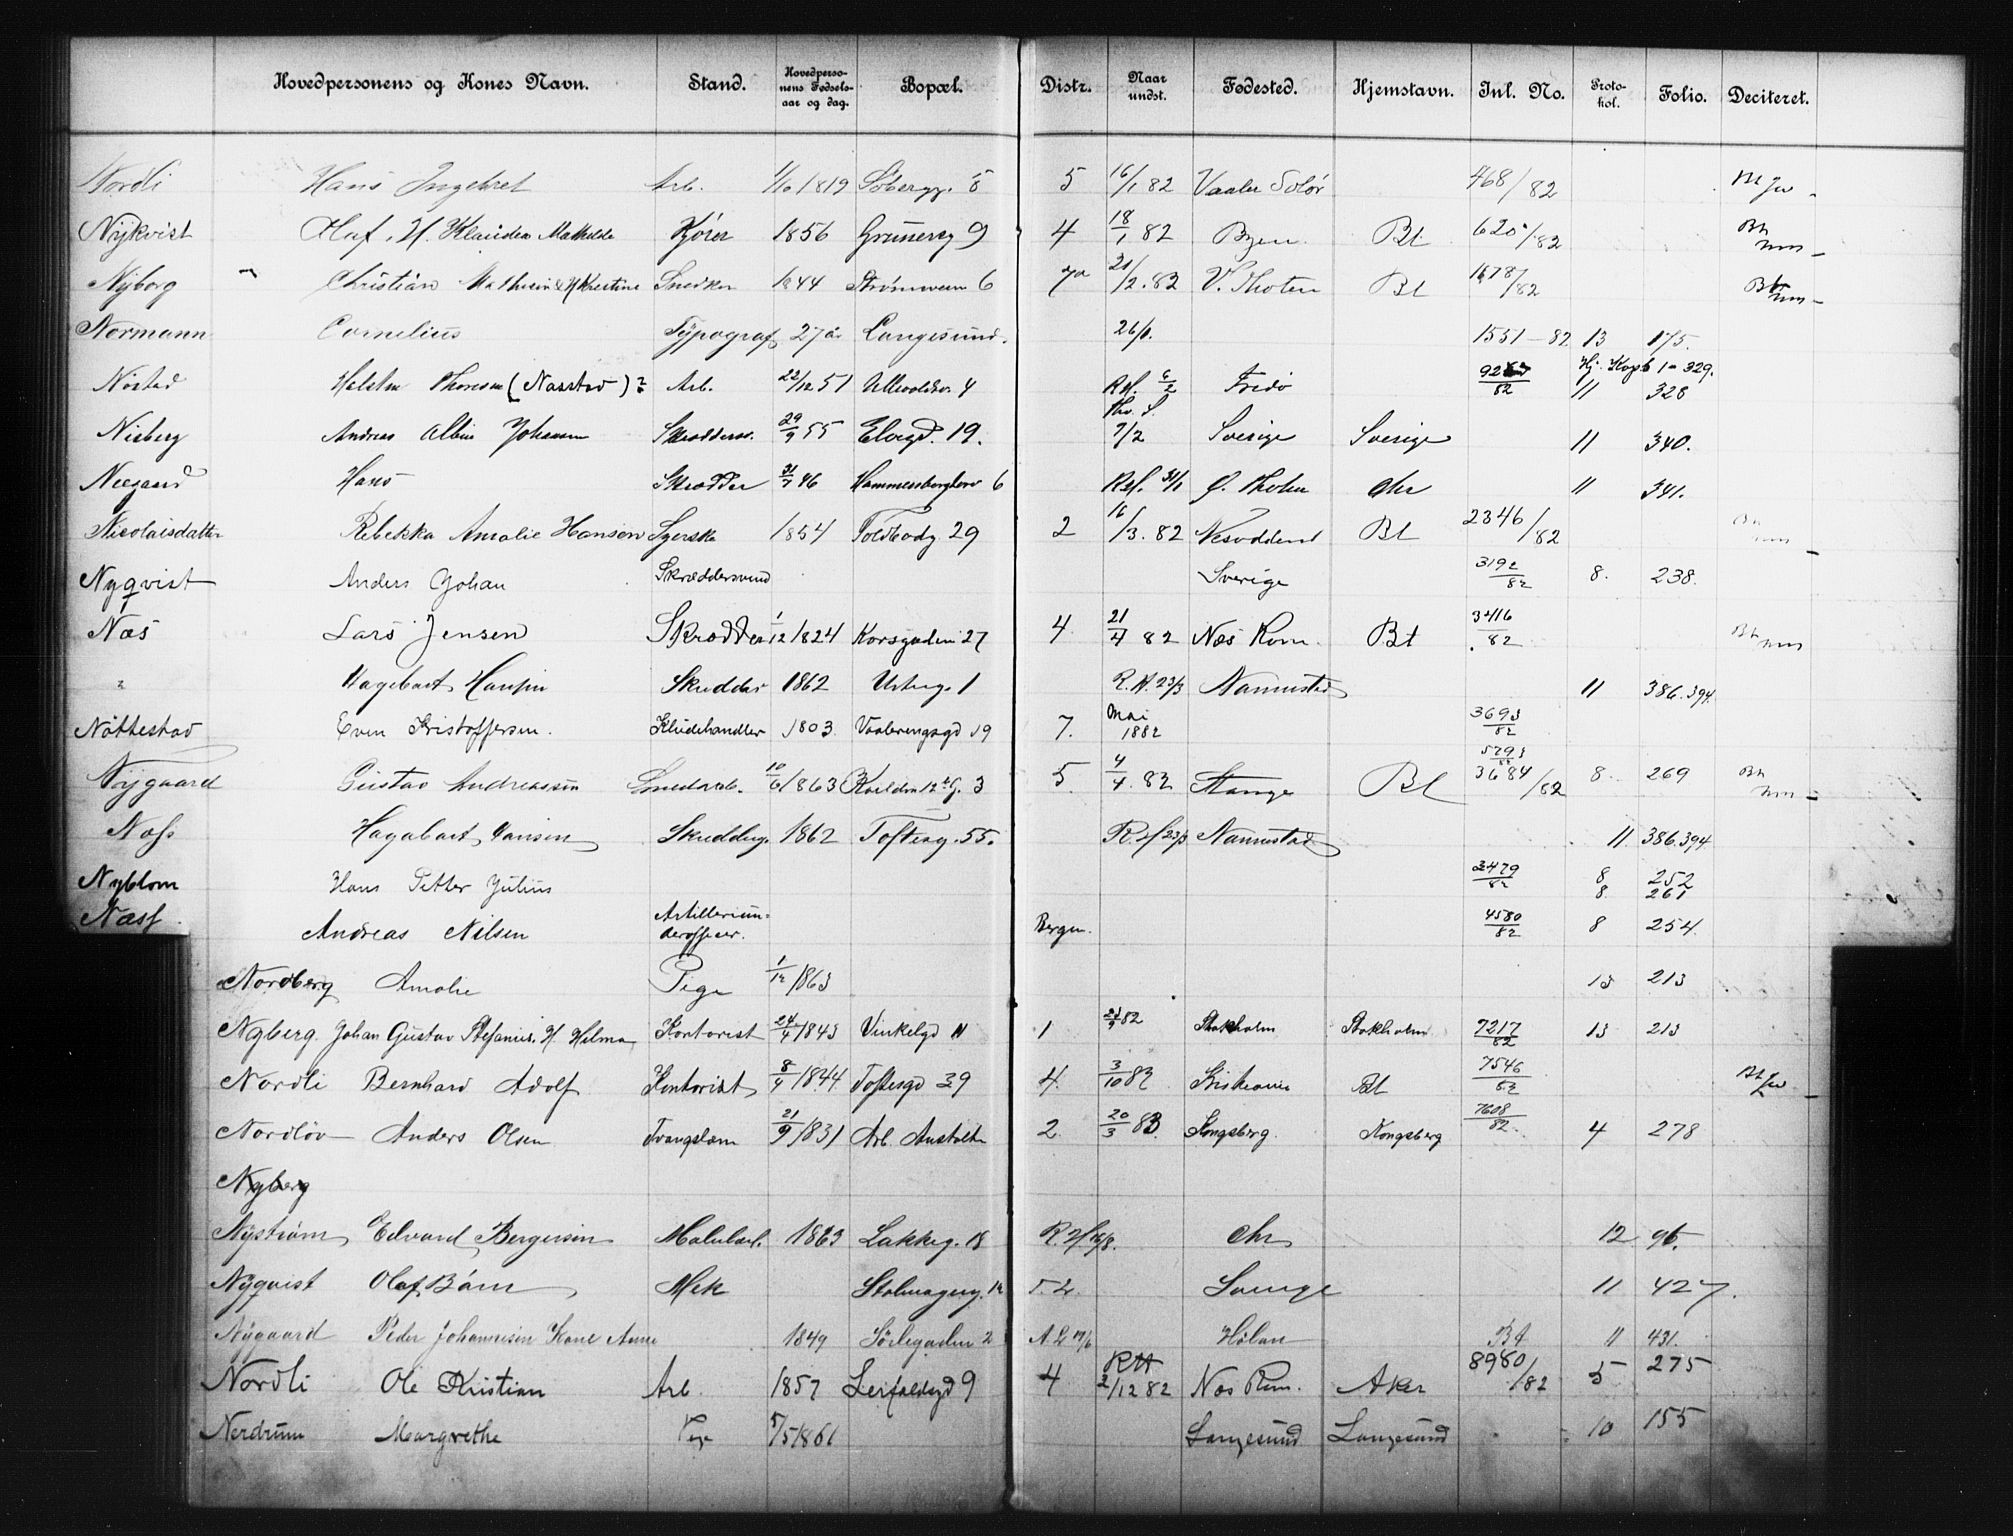 Hovedpersonens og Kones Navn. Stand. Hovedperso-nens Fødsels-aar og dag. Bopæl. Distr. Naar undst. Fødested. Hjemstavn. Inl. No. Proto-kol. Folio. Deciteret.
Nordli Hans Ingebret Arb. 1/10 1819 Söbergg. 5 16/1 82 Vaaler Solør 468/82
Nÿkvist Olaf. H. Klaudea Mathilde Kjører 1856 Grünersg 9 4 18/1 82 Byen Bt 620/82
Nÿborg Christian Mathisen H Kristine Snedker 1844 Strømsveien 6 7a 21/2. 82 V. Thoten Bt 1678/82
Normann Cornelius Typograf 27 år Langesund. 26/1. 1551-82 13 175.
Nøstad Halstn Thoresen (Nasstad)? Arb. 22/12 51 Ullevoldsv. 4 Rsf. 6/2 Tredö 82 11 328
Nisberg Andreas Albin Johansen Skræddersv. 29/9 55 Elvegd. 19. 7/2 Sverige Sverige 11 340.
Neegaard Hans Skrædder 31/7 46 Hammersborgtorv 6 Rsf. 31/1 Ø. Thoten Chr 11 341.
Nicolaisdatter Rebekka Amalie Hansen Syerske 1854 Toldbodg. 29 2 16/3. 82 Nesodden Bt 2346/82
Nyqvist Anders Johan Skræddersvend Sverige 3192/82 8. 238.
Næs Lars Jensen Skrædder 1/12 1824 Korsgaden 27 4 21/4 82 Næs Rom. Bt 3416/82
" Hagebart Hansen Skrædder 1862 Urteg. 1 R.H. 23/3 Nannestad 11 386.394.
Nøttestad Even Kristoffersen. Kludehandler 1803. Vaalerengsgd 19 7. Mai 1882 3693/82
Nÿgaard Gustav Andreassen Smedarb. 10/6 1863 Kvaldrn 12 G. 3 5. 4/4. 82 Stange Bt 3684/82 8. 269
Næss Hagabart Hansen Skrædderg. 1862 Toftesg. 55. R.H 23/3 Nannestad 11 386.394
Nyblom Hans Petter Julius 3479/82 8 252
8 261
Næss Andreas Nilsen Artilleriun-derofficer. Bergen. 4580/82 8 254.
Nordberg Amalie Pige 1/12 1863 13 213
Nyberg. Johan Gustav Stefanus. H. Hilma Kontorist 24/4 1843 Vinkelgd 11 1 82 Stokholm Stokholm 7217/82 13 213
Nordli Bernhard Adolf Kontorist 8/4 1844. Toftesgd 39 4. 3/10 82 Kristiania Bt 7546/82
Nordlöv Anders Olsen Tvangslem 21/9 1831 Arb. Anstalten 2. 20/3 83. Kongsberg. Kongsberg 7608/82. 4 278
Nyberg
Nÿström Edvard Bergersen Malerarb. 1863 Lakkeg. 18 Chr 12 96.
Nÿqvist Olaf Börn Mek Stolmagerg. 12 Sverige 11 427.
Nÿgaard Peder Johannesen Kone Anne 1849 Sörlegaden 2 Hölan Bt 11 431.
Nordli Ole Kristian Arb. 1857 Leirfaldsgd 9 4 RH 2/12 82 Næs Rom. Aker 8980/82 5 275
Nerdrum Margrethe Pige 5/5 1861 Langesund Langesund 10 155